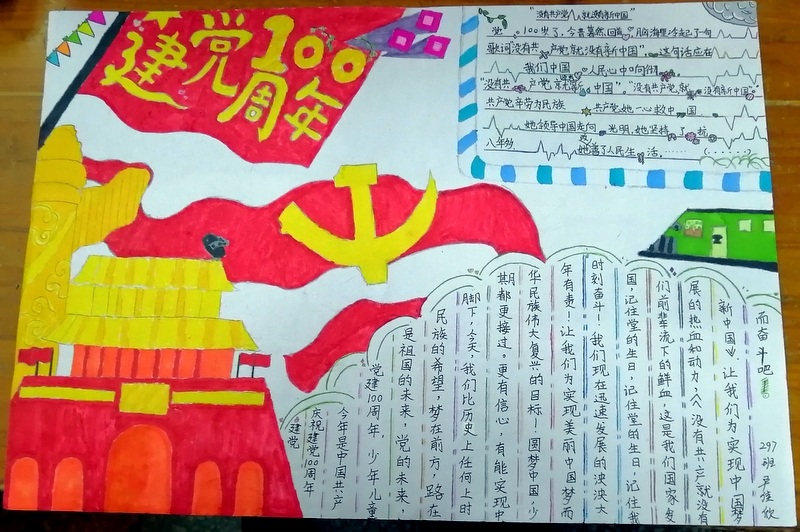 建党100周年
"没有共产党人就没有新中国"
党,100岁了,今昔蓦然回首,脑海里浮起了一句
歌词没有共产党就没有新中国",这句话应在
我们中国人民心中回彻
"没有共产党就没有新中国","没有共产党就没有新中国"
共产党辛劳为民族 共产党她一心救中国
她领导中国走向光明,她坚持了抗
八年多 她改善了人民生活,(……)
建党
庆祝建党100周年
今年是中国共产
党建100周年,少年儿童
是祖国的未来,党的未来,
民族的希望,梦在前方,路在
脚下,今天,我们比历史上任何上时
期都更接过。更有信心,有能实现中
华民族伟大复兴的目标!圆梦中国,少
年有责!让我们为实现美丽中国梦而
时刻奋斗!我们现在迅速发展的泱泱大
国,记住堂的生日,记住堂的生日,记住我
们前辈流下的鲜血,这是我们国家发
展的热血和动力,《没有共产就没有
新中国》,让我们为实现中国梦
而奋斗吧
297班